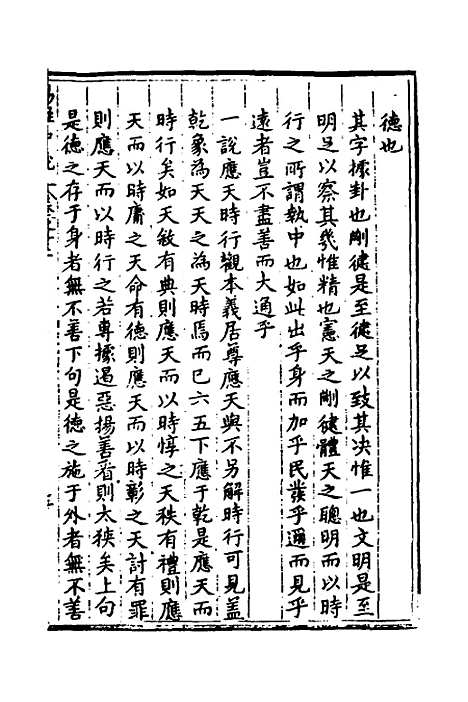 德也
其字據卦也剛健是至健足以致其决惟一也文明是至
明足以察其幾惟精也憲天之剛健體天之聰明而以時
行之所謂執中也如此出乎身而加乎民發乎邇而見乎
遠者豈不盡善而大通乎
一說應天時行觀本義居尊應天與不另解時行可見蓋
乾象為天天之為天時焉而已六五下應于乾是應天而
時行矣如天敘有典則應天而以時惇之天秩有禮則應
天而以時庸之天命有德則應天而以時彰之天討有罪
則應天而以時行之若專據遏惡揚善看則太狹矣上句
是德之存于身者無不善下句是德之施于外者無不善